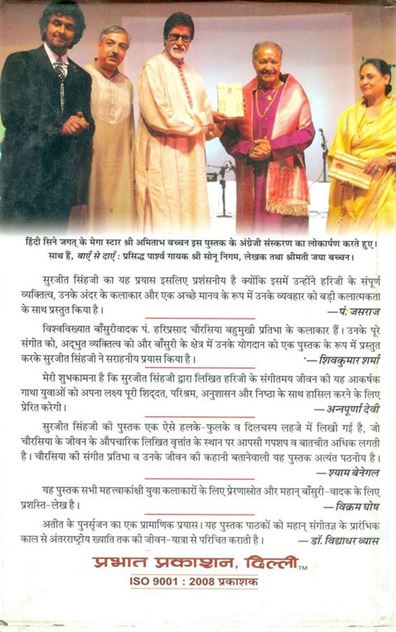 हिंदी सिने जगत् के मेगा स्टार श्री अमिताभ बच्चन इस पुस्तक के अंग्रेजी संस्करण का लोकार्पण करते हुए।
साथ हैं, बाएँ से दाएँ : प्रसिद्ध पार्श्व गायक श्री सोनू निगम, लेखक तथा श्रीमती जया बच्चन।
सुरजीत सिंहजी का यह प्रयास इसलिए प्रशंसनीय है क्योंकि इसमें उन्होंने हरिजी के संपूर्ण
व्यक्तित्व, उनके अंदर के कलाकार और एक अच्छे मानव के रूप में उनके व्यवहार को बड़ी कलात्मकता
के साथ प्रस्तुत किया है। —पं. जसराज
विश्वविख्यात बाँसुरीवादक पं. हरिप्रसाद चौरसिया बहुमुखी प्रतिभा के कलाकार हैं। उनके पूरे
संगीत को, अद्भुत व्यक्तित्व को और बाँसुरी के क्षेत्र में उनके योगदान को एक पुस्तक के रूप में प्रस्तुत
करके सुरजीत सिंहजी ने सराहनीय प्रयास किया है। —शिवकुमार शर्मा
मेरी शुभकामना है कि सुरजीत सिंहजी द्वारा लिखित हरिजी के संगीतमय जीवन की यह आकर्षक
गाथा युवाओं को अपना लक्ष्य पूरी शिद्दत, परिश्रम, अनुशासन और निष्ठा के साथ हासिल करने के लिए
प्रेरित करेगी। —अन्नपूर्णा देवी
सुरजीत सिंहजी की पुस्तक एक ऐसे हलके-फुलके व दिलचस्प लहजे में लिखी गई है, जो
चौरसिया के जीवन के औपचारिक लिखित वृत्तांत के स्थान पर आपसी गपशप व बातचीत अधिक लगती
है। चौरसिया की संगीत प्रतिभा व उनके जीवन की कहानी बतानेवाली यह पुस्तक अत्यंत पठनीय है।
—श्याम बेनेगल
यह पुस्तक सभी महत्त्वाकांक्षी युवा कलाकारों के लिए प्रेरणास्रोत और महान् बाँसुरी-वादक के लिए
प्रशस्ति-लेख है। —विक्रम घोष
अतीत के पुनर्सृजन का एक प्रामाणिक प्रयास। यह पुस्तक पाठकों को महान् संगीतज्ञ के प्रारंभिक
काल से अंतरराष्ट्रीय ख्याति तक की जीवन-यात्रा से परिचित कराती है। —डॉ. विद्याधर व्यास
प्रभात प्रकाशन, दिल्ली TM
ISO 9001 : 2008 प्रकाशक